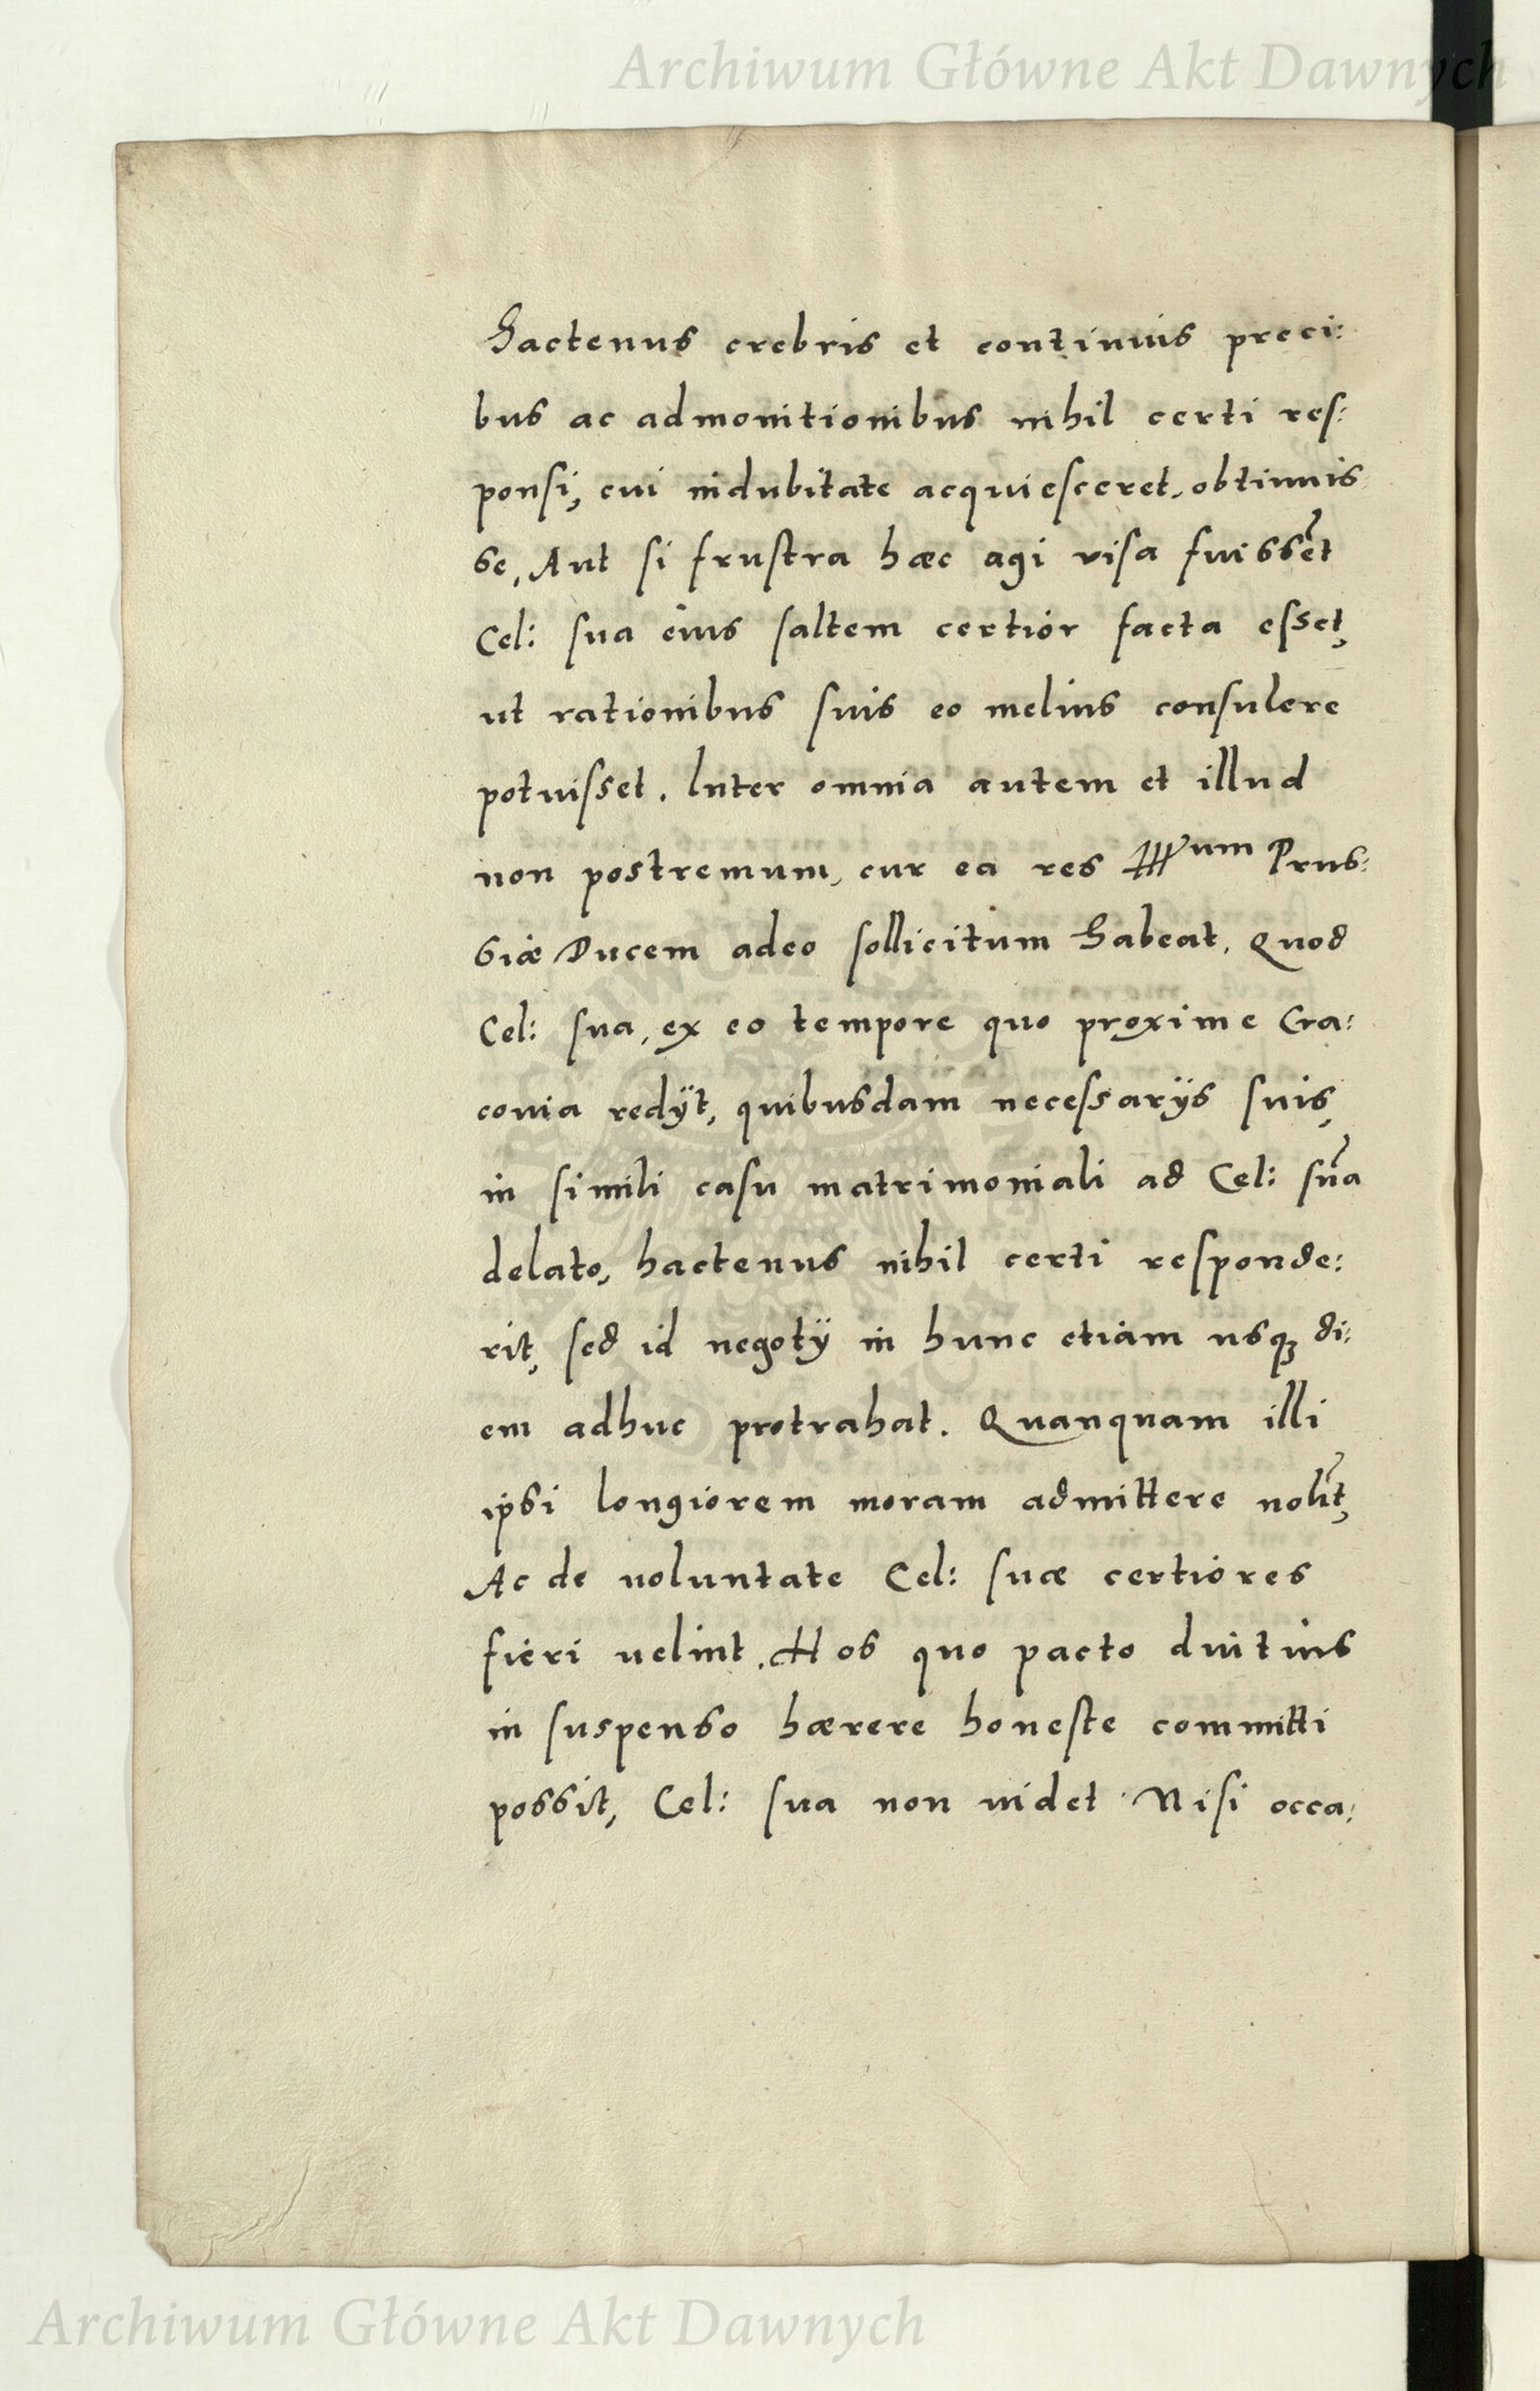 Archiwum Główne Akt Dawnych
Hactenus crebris et continuis preci:
bus ac admonitionibus nihil certi res:
ponsi, cui indubitate acquiesceret, obtinuis
se, Aut si frustra hæc agi visa fuissẽt
Cel: sua eius saltem certior facta esset,
ut rationibus suis eo melius consulere
potuisset. Inter omnia autem et illud
non postremum, cur ea res Illᵘᵐ Prus:
siæ Ducem adeo sollicitum habeat, Quod
Cel: sua, ex eo tempore quo proxime Cra:
couia redijt, quibusdam necessarijs suis,
in simili casu matrimoniali ad Cel: suã
delato, hactenus nihil certi responde:
rit, sed id negotij in hunc etiam usqꝫ di:
em adhuc protrahat. Quanquam illi
ipsi longiorem moram admittere nolĩt,
Ac de uoluntate Cel: suæ certiores
fieri uelint. Hos quo pacto diutius
in suspenso hærere honeste committi
possit, Cel: sua non uidet. Nisi occa:
Archiwum Główne Akt Dawnych